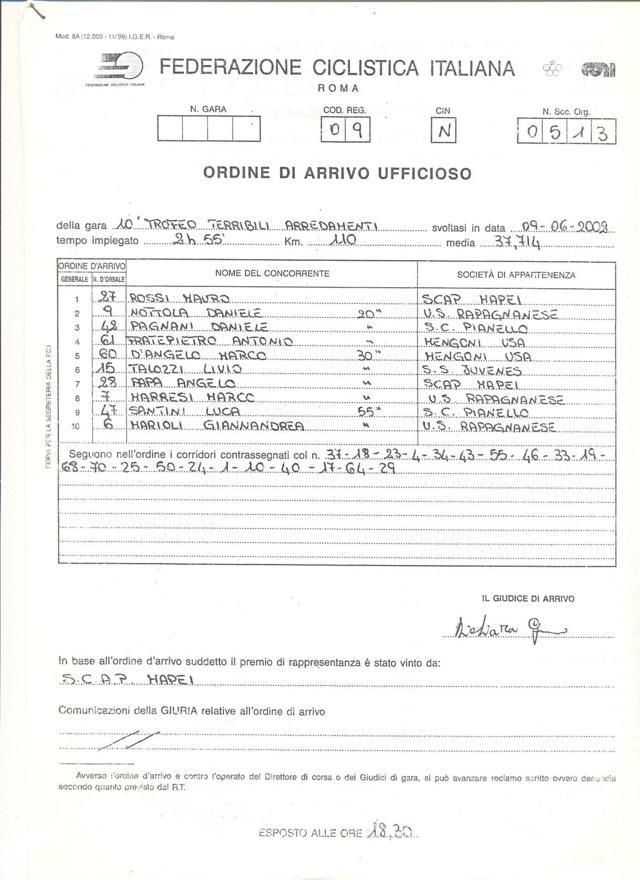 Mod. 8A (12.000 - 11/99) I.G.E.R. - Roma
FEDERAZIONE CICLISTICA ITALIANA
FEDERAZIONE CICLISTICA ITALIANA
ROMA
N. GARA COD. REG. CIN N. Soc. Org.
09 N 0513
ORDINE DI ARRIVO UFFICIOSO
della gara 10° TROFEO TERRIBILI ARREDAMENTI svoltasi in data 09-06-2002
tempo impiegato 2h 55' Km. 110 media 37,714
ORDINE D'ARRIVO NOME DEL CONCORRENTE SOCIETÀ DI APPARTENENZA
GENERALE N. D'ORSALE
1 27 ROSSI MAURO SCAP MAPEI
2 9 NOTTOLA DANIELE 20" U.S. RAPAGNANESE
3 42 PAGNANI DANIELE " S.C. PIANELLO
4 61 FRATEPIETRO ANTONIO " MENGONI USA
5 60 D'ANGELO MARCO 30" MENGONI USA
6 15 TALOZZI LIVIO " S.S. JUVENES
7 28 PAPA ANGELO " SCAP MAPEI
8 7 MARRESI MARCO " U.S. RAPAGNANESE
9 47 SANTINI LUCA 55" S.C. PIANELLO
10 6 MARIOLI GIANNANDREA " U.S. RAPAGNANESE
COPIA PER LA SEGRETERIA DELLA F.C.I.
Seguono nell'ordine i corridori contrassegnati col n. 37-18-23-4-34-43-55-46-33-19-
68-70-25-50-24-1-10-40-17-64-29
IL GIUDICE DI ARRIVO
In base all'ordine d'arrivo suddetto il premio di rappresentanza è stato vinto da:
S.C.A.P. MAPEI
Comunicazioni della GIURIA relative all'ordine di arrivo
Avverso l'ordine d'arrivo e contro l'operato del Direttore di corsa o dei Giudici di gara, si può avanzare reclamo scritto ovvero denuncia
secondo quanto previsto dal R.T.
ESPOSTO ALLE ORE 18,30